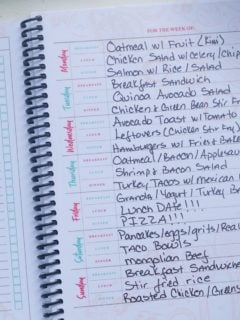 FOR THE WEEK OF:
Monday
Oatmeal w/ Fruit (Kiwi)
Chicken Salad w/ Celery/Chip
Salmon w/ Rice/Salad
Tuesday
BREAKFAST Breakfast Sandwich
LUNCH Quinoa Avocado Salad
DINNER Chicken & Green Bean Stir F
Wednesday
BREAKFAST Avocado Toast w/ Tomato
LUNCH Leftovers (Chicken Stir Fry)
DINNER Hamburgers w/ Fries & Bake
Thursday
BREAKFAST Oatmeal/Bacon/Applesau
LUNCH Shrimp & Bacon Salad
DINNER Turkey Tacos w/ Mexican
Friday
BREAKFAST Granola/Yogurt/Turkey B
LUNCH Lunch Date!!!
DINNER Pizza!!!
Saturday
BREAKFAST Pancakes/eggs/grits/
LUNCH Taco Bowls
DINNER Mongolian Beef
Sunday
BREAKFAST Breakfast Sandwiche
LUNCH Stir fried rice
DINNER Roasted Chicken/Greens